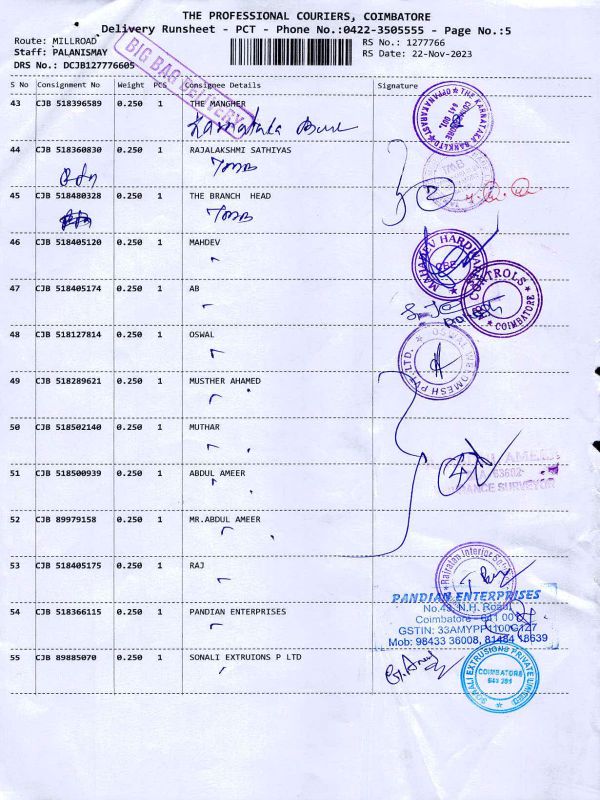 THE PROFESSIONAL COURIERS, COIMBATORE
Delivery Runsheet - PCT - Phone No.:0422-3505555 - Page No.:5
Route: MILLROAD
Staff: PALANISMAY
DRS No.: DCJB127776605
RS No.: 1277766
RS Date: 22-Nov-2023
BIG BAG DELIVERY
S No Consignment No Weight PCS Consignee Details Signature
43 CJB 518396589 0.250 1 THE MANGHER
Karnataka Bank
THE KARNATAKA BANK LTD
COIMBATORE
641 001
44 CJB 518360830 0.250 1 RAJALAKSHMI SATHIYAS
TMB
45 CJB 518480328 0.250 1 THE BRANCH HEAD
TMB
46 CJB 518405120 0.250 1 MAHDEV
MAHADEV HARDWARE
CBE
47 CJB 518405174 0.250 1 AB
CONTROLS
COIMBATORE
48 CJB 518127814 0.250 1 OSWAL
OSWAL WELDMESH PVT. LTD.
49 CJB 518289621 0.250 1 MUSTHER AHAMED
50 CJB 518502140 0.250 1 MUTHAR
51 CJB 518500939 0.250 1 ABDUL AMEER
AMEER
SURVEYOR
52 CJB 89979158 0.250 1 MR.ABDUL AMEER
53 CJB 518405175 0.250 1 RAJ
Interior
54 CJB 518366115 0.250 1 PANDIAN ENTERPRISES
PANDIAN ENTERPRISES
No.43, N.H. Road,
Coimbatore - 641 001
GSTIN: 33AMYPP1100G1Z7
Mob: 98433 36008, 81484 18639
55 CJB 89885070 0.250 1 SONALI EXTRUIONS P LTD
SONALI EXTRUSIONS PRIVATE LIMITED
COIMBATORE